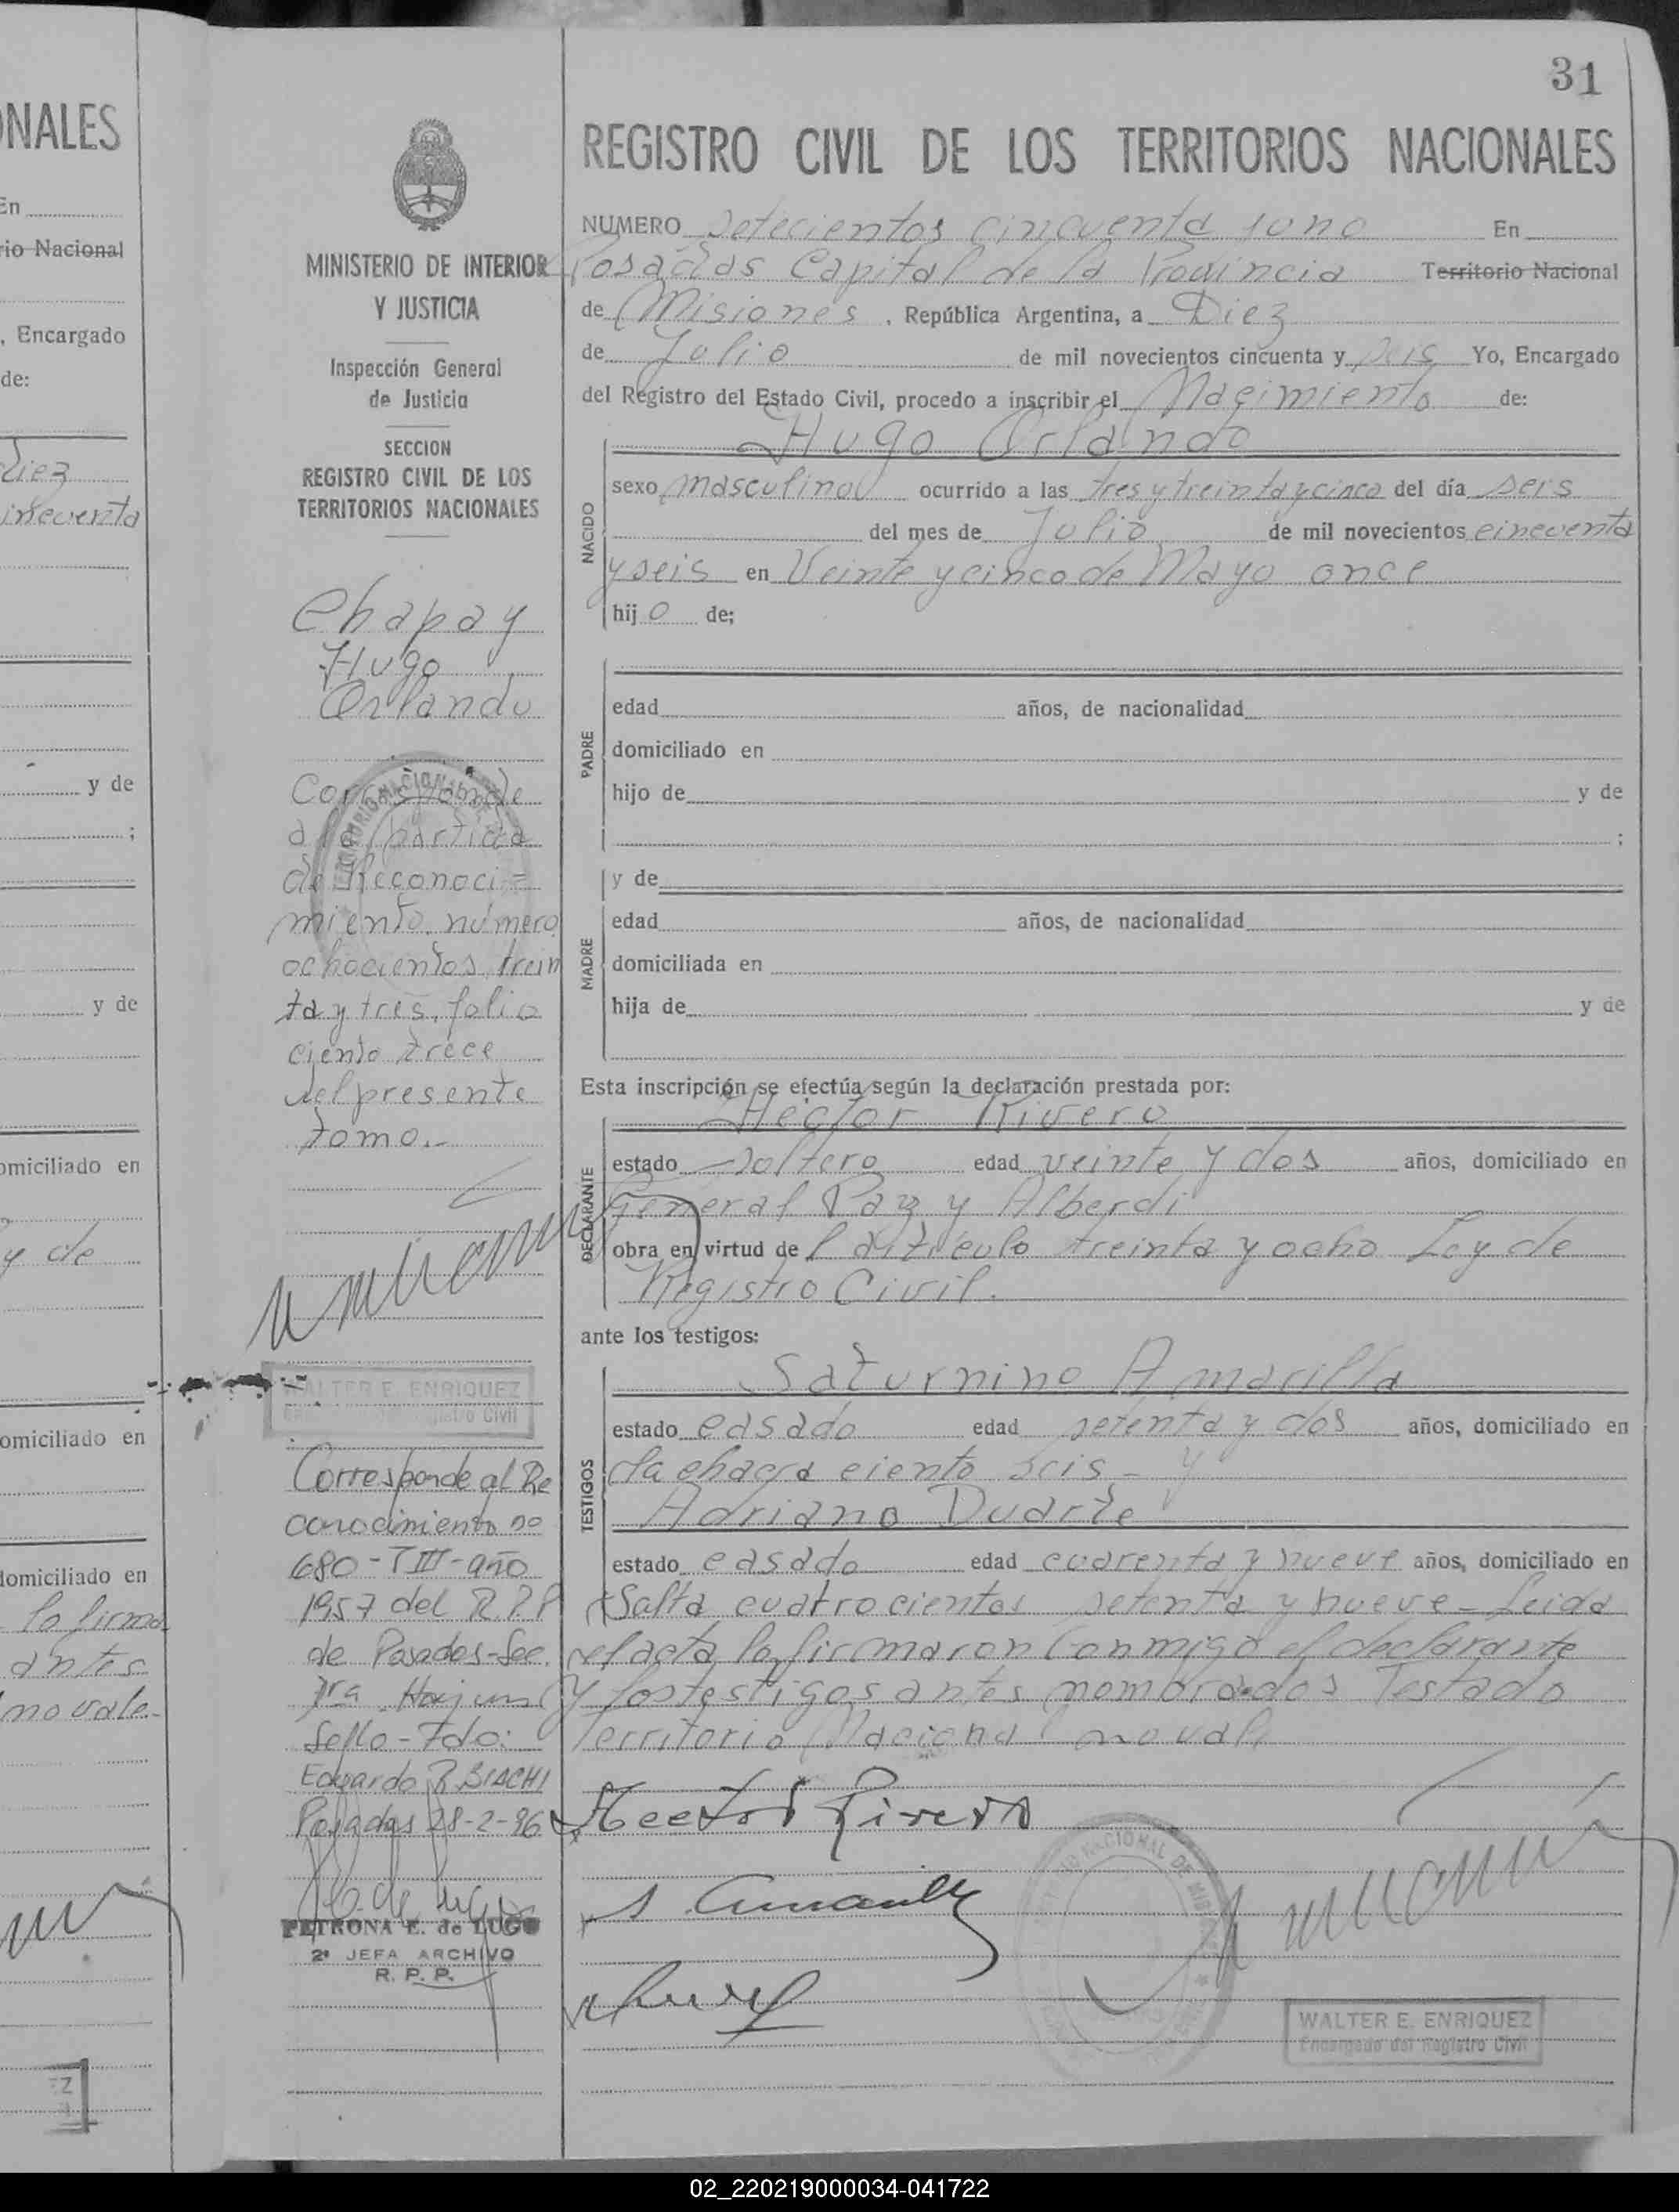 31
NALES
En
rio Nacional
, Encargado
de:
Diez
incuenta
y de
;
y de
omiciliado en
y de
omiciliado en
domiciliado en
la firma
antes
no vale.-
MINISTERIO DE INTERIOR
Y JUSTICIA
Inspección General
de Justicia
SECCION
REGISTRO CIVIL DE LOS
TERRITORIOS NACIONALES
Chapay
Hugo
Orlando
Corresponde
a la partida
de Reconoci=
miento número
ochocientos trein
ta y tres, folio
ciento trece
del presente
tomo.-
WALTER E. ENRIQUEZ
Registro Civil
Corresponde al Re
conocimiento no
680 - T III - año
1957 del R.P.P
de Posadas - Sec.
1ra. Hay un
Sello - Fdo:
Edgardo R. BIACHI
Posadas 28-2-96
PETRONA E. de LUGO
2ª JEFA ARCHIVO
R. P. P.
REGISTRO CIVIL DE LOS TERRITORIOS NACIONALES
NUMERO Setecientos cincuenta y uno En
Posadas Capital de la Provincia Territorio Nacional
de Misiones , República Argentina, a Diez
de Julio de mil novecientos cincuenta y seis Yo, Encargado
del Registro del Estado Civil, procedo a inscribir el Nacimiento de:
Hugo Orlando
NACIDO
sexo masculino ocurrido a las tres y treinta y cinco del día seis
del mes de Julio de mil novecientos cincuenta
y seis en Veinte y cinco de Mayo once
hijo de;
PADRE
edad años, de nacionalidad
domiciliado en
hijo de y de
;
y de
MADRE
edad años, de nacionalidad
domiciliada en
hija de y de
Esta inscripción se efectúa según la declaración prestada por:
Hector Rivero
DECLARANTE
estado soltero edad veinte y dos años, domiciliado en
General Paz y Alberdi
obra en virtud del artículo treinta y ocho Ley de
Registro Civil.
ante los testigos:
Saturnino Amarilla
TESTIGOS
estado casado edad setenta y dos años, domiciliado en
la chacra ciento seis - y
Adriano Duarte
estado casado edad cuarenta y nueve años, domiciliado en
Salta cuatrocientos setenta y nueve - Leida
el acta, la firmaron conmigo el declarante
y los testigos antes nombrados Testado
Territorio Nacional no vale
Hector Rivero
WALTER E. ENRIQUEZ
Encargado del Registro Civil
02_220219000034-041722